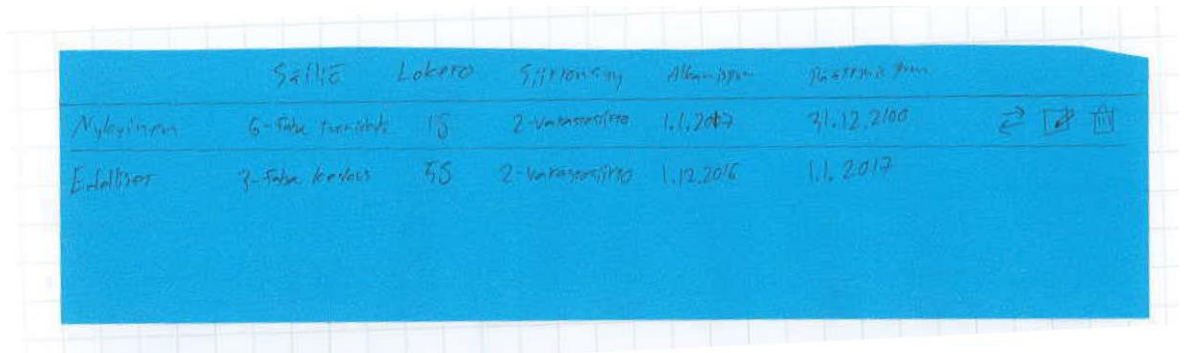 Säiliö Lokero Siirtonsyy Alkamispvm Päättymispvm
Nykyinen 15 2-varastosiirto 1.1.2017 31.12.2100
Edelliset 3-Fabe keskus 55 2-varastosiirto 1.12.2016 1.1.2017